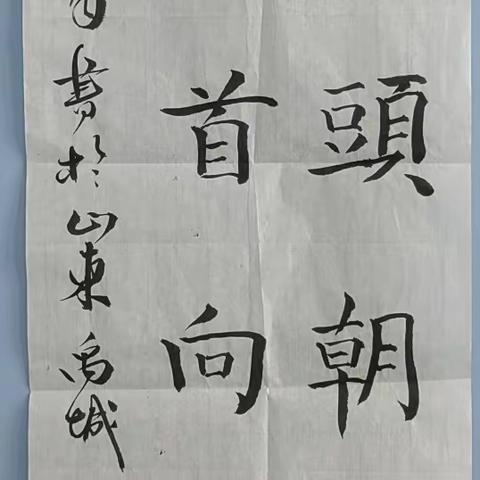 頭朝
首向
書於山東禹城